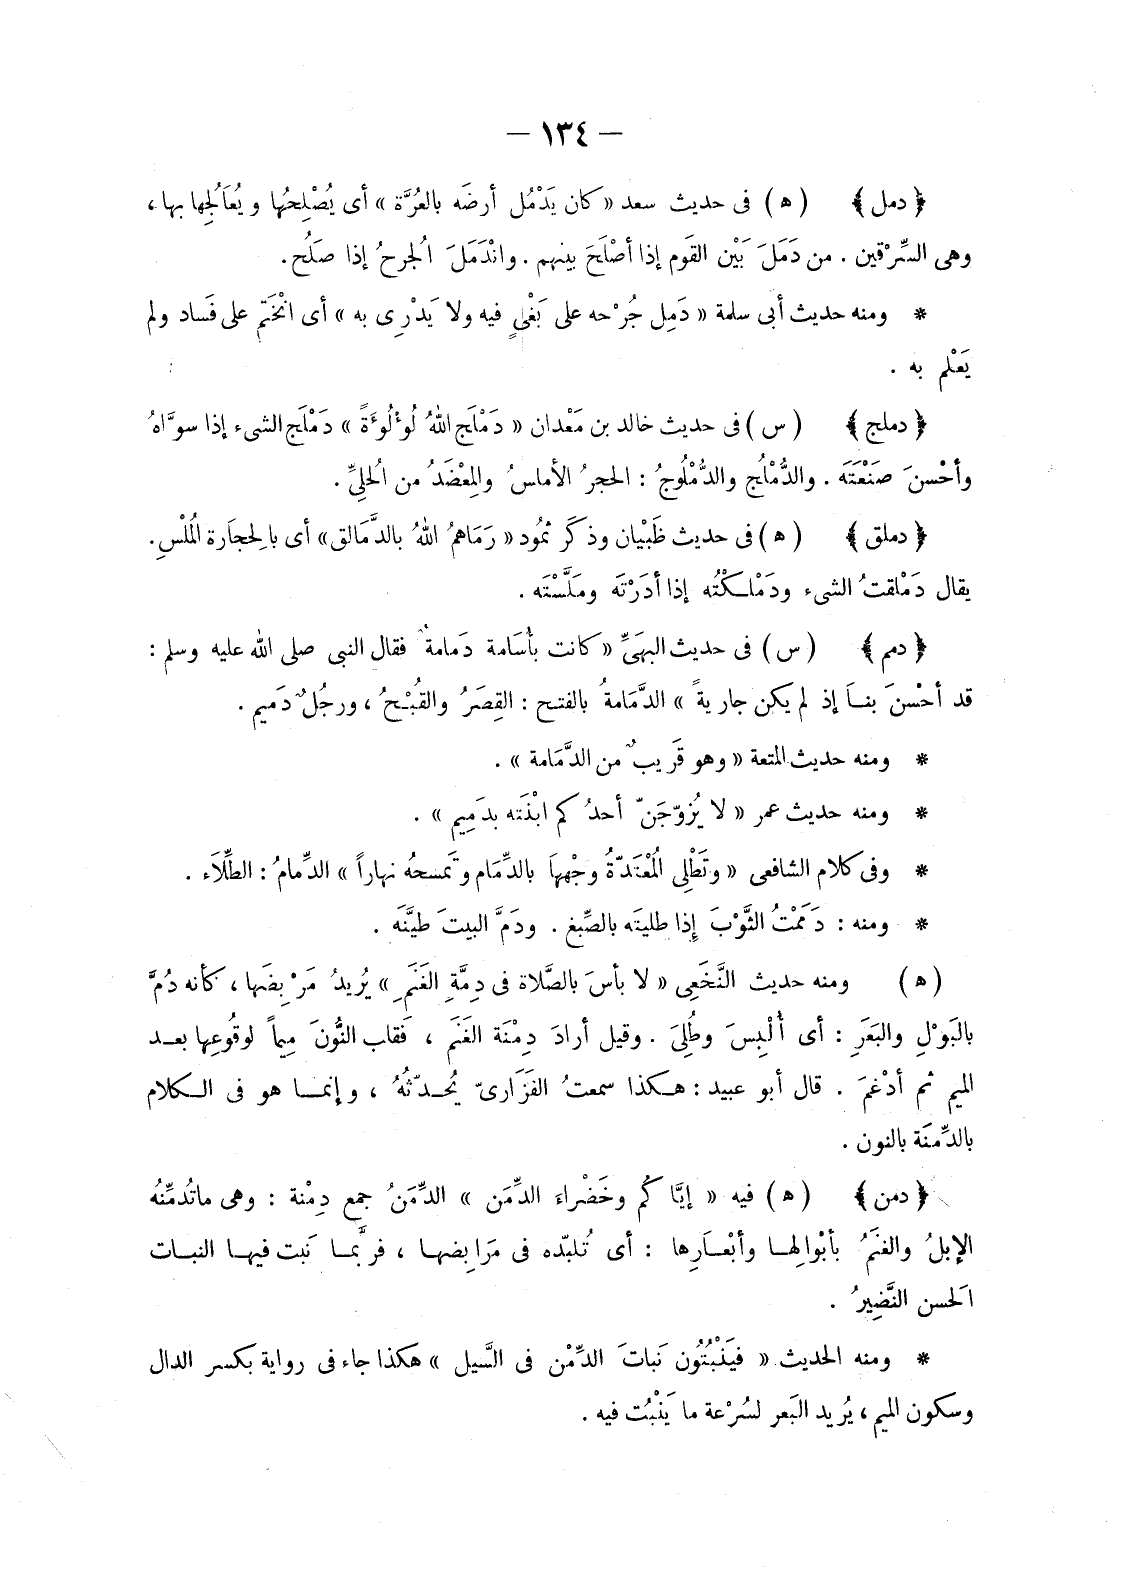 — ١٣٤ —
﴿ دمل ﴾ ( ﻫ ) فى حديث سعد « كان يَدْمُل أرضَه بالعُرَّة » أى يُصْلِحُها ويُعَالُجِها بها ،
وهى السِّرْقين . من دَمَلَ بَيْن القَوم إذا أصْلَحَ بينهم . وانْدَمَلَ الْجرحُ إذا صَلُح.
* ومنه حديث أبى سلمة « دَمِل جُرْحه على بَغْىٍ فيه ولا يَدْرِى به » أى انْخَتم على فَساد ولم
يَعْلم به .
﴿ دملج ﴾ ( س ) فى حديث خالد بن مَعْدان « دَمْلَج اللهُ لُوْلُوَةً » دَمْلَج الشىء إذا سوَّاهُ
وأحْسنَ صَنْعَتَه . والدُّمْلُج والدُّمْلُوجُ : الحجرُ الأملسُ والِمعْضَدُ من الُحلِىِّ .
﴿ دملق ﴾ ( ﻫ ) فى حديث ظَبْيان وذكَر ثمُود « رَمَاهمُ اللهُ بالدَّمَالق » أى بالِحجاَرة الُملْسِ.
يقال دَمْلقتُ الشىء ودَمْلـكْتُه إذا أدَرْتَه ومَلَّسْتَه .
﴿ دمم ﴾ ( س ) فى حديث البهَىِّ « كانت بأُسَامة دَمامةٌ فقال النبى صلى الله عليه وسلم :
قد أحْسنَ بنـاَ إذ لم يكن جاريةً » الدَّمَامةُ بالفتح : القِصَرُ والقُبْحُ ، ورجُلٌ دَميم .
* ومنه حديث المتعة « وهو قَريبٌ من الدَّمَامة » .
* ومنه حديث عمر « لا يُزوّجَنّ أحدُكم ابْنَته بدَمِيم » .
* وفى كلام الشافعى « وتَطْلِى الُمْعْتَدّةُ وجْههاَ بالدِّمَام وتَمسحهُ نهاراً » الدِّمامُ : الطِّلَاء .
* ومنه : دَمَمْتُ الثَّوْبَ إِذا طليتَه بالصِّبغ . ودَمَّ البيتَ طيَّنَه .
( ﻫ ) ومنه حديث النَّخَعِى « لا بأسَ بالصَّلاة فى دِمَّةِ الغَنَمِ » يُريدُ مَرْبِضَها ، كأنه دُمَّ
بالبَوْلِ والبَعَرِ : أى أُلْبِسَ وطُلِىَ . وقيل أرادَ دِمْنَة الغَنَم ، فَقلب النُّونَ مِيماً لوقُوعِها بعـد
الميم ثم أدْغمَ . قال أبو عبيد : هـكذا سمعتُ الفَزَارىّ يُحـدّثُهُ ، وإنمـا هو فى الـكلام
بالدِّمنَة بالنون .
﴿ دمن ﴾ ( ﻫ ) فيه « إيَّاكُم وخَضْراءَ الدِّمَن » الدِّمَنُ جمع دِمْنة : وهى ماتُدمِّنُهُ
الإبلُ والغنَمُ بأبْوالِهـا وأبْعـارِها : أى تُلبّده فى مَرَابِضهـا ، فربَّمـا نَبت فيهـا النبـات
الَحسن النَّضِيرُ .
* ومنه الحديث « فيَنْبُتُون نَباتَ الدِّمْن فى السَّيل » هكذا جاء فى رواية بكسر الدال
وسكون الميم ، يُريد البَعر لسُرْعة ما يَنْبُت فيه .